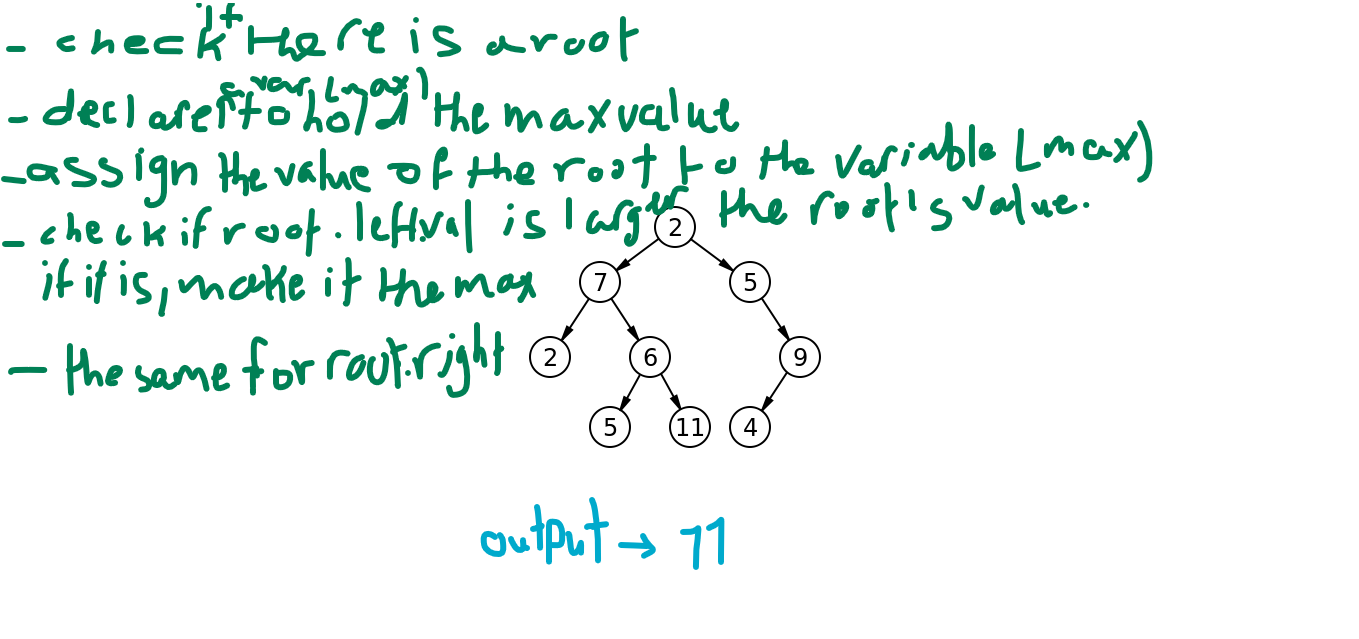 - check if there is a root
- declare a var (max) to hold the max value
- assign the value of the root to the variable (max)
- check if root.left.val is larger the root's value.
if it is, make it the max
- the same for root.right
2
7 5
2 6 9
5 11 4
output → 11